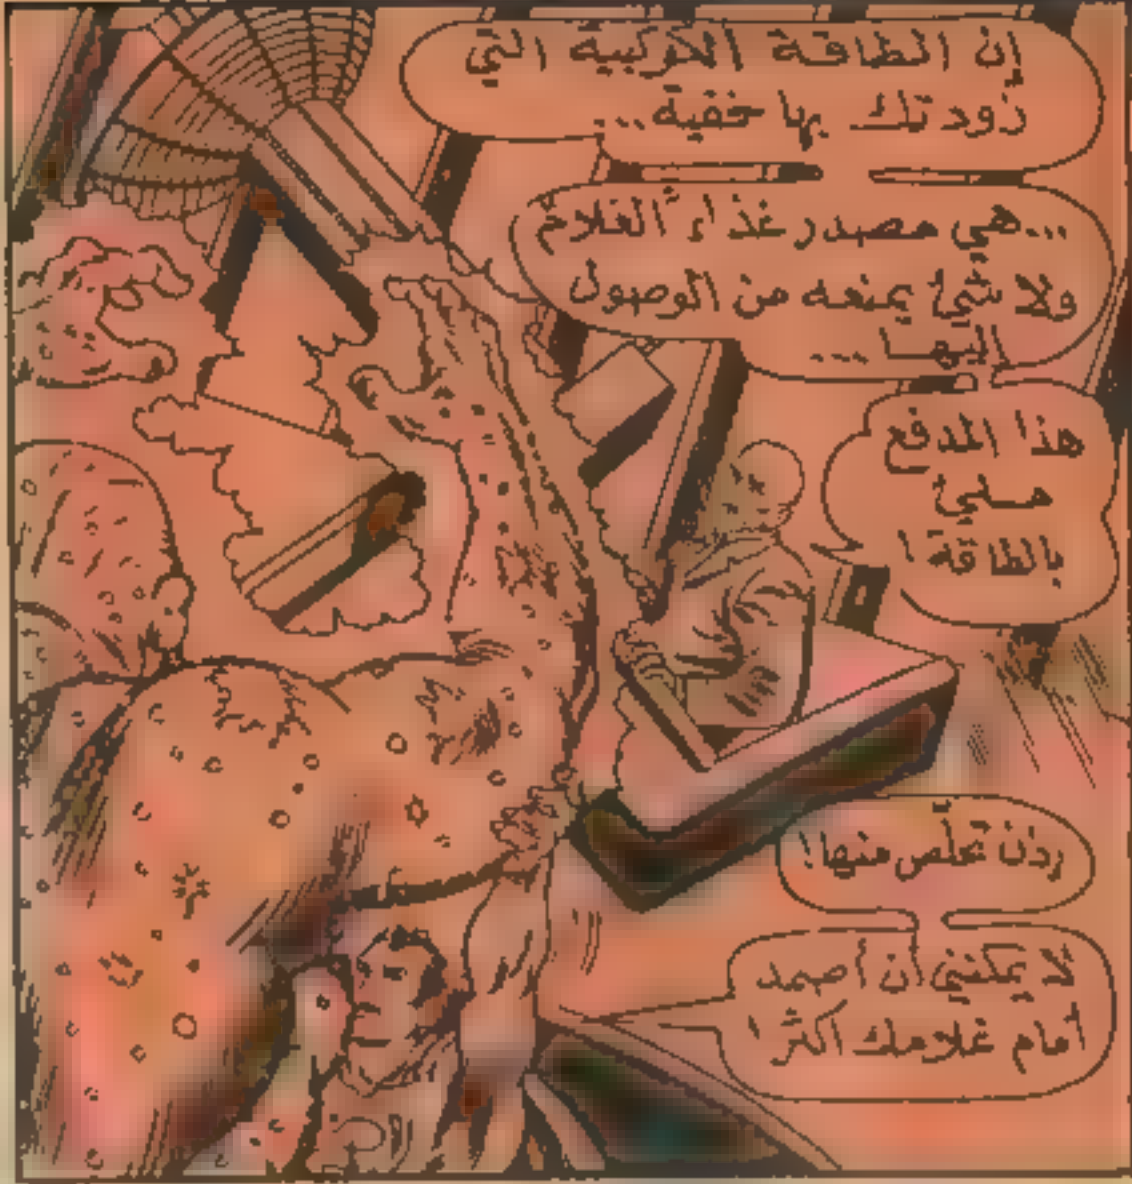 إن الطاقة الكوكبية التي
زودتك بها خفية...
...هي مصدر غذاء الغلام
ولا شيء يمنعه من الوصول
إليها ...
هذا المدفع
مليء
بالطاقة!
إذن تخلّص منها!
لا يمكنني أن أصمد
أمام غلامك أكثر!